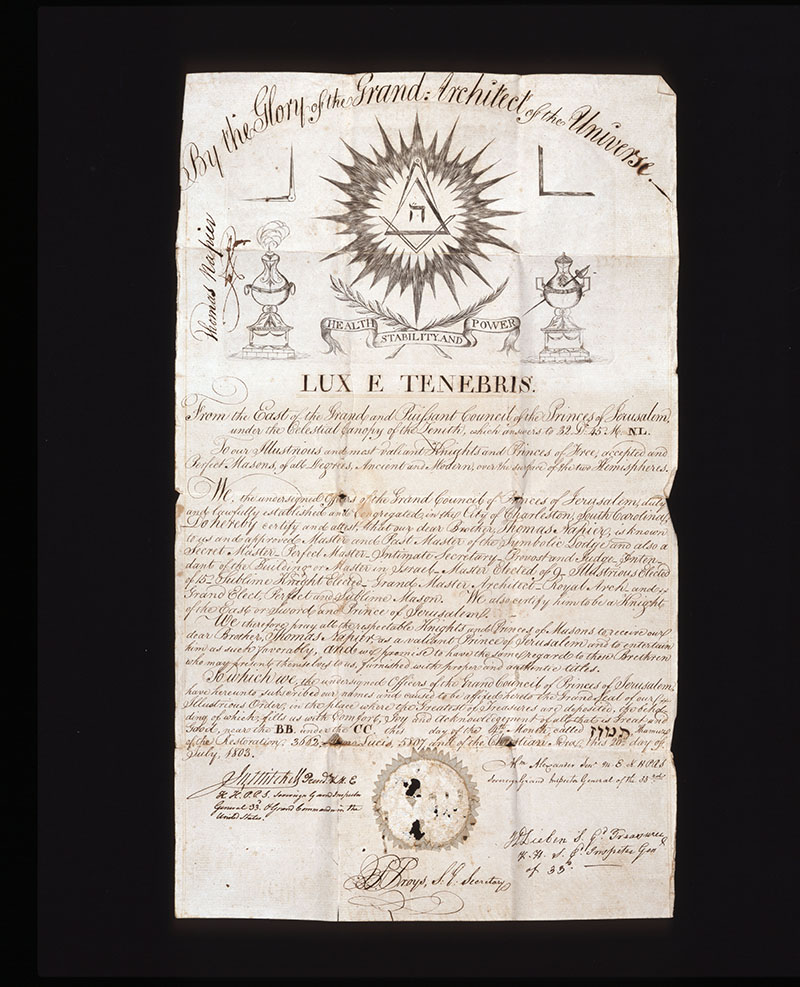 By the Glory of the Grand : Architect of the Universe.
Thomas Napier
ה
HEALTH STABILITY AND POWER
LUX E TENEBRIS.
From the East of the Grand and Puissant Council of the Princes of Jerusalem,
under the Celestial Canopy of the Zenith, which answers to 32 D. 45 M. NL.
To our Illustrious and most valiant Knights and Princes of Free, accepted and
Perfect Masons, of all Degrees, Ancient and Modern, over the surface of the two Hemispheres.
We, the undersigned Officers of the Grand Council of Princes of Jerusalem, duly
and lawfully established and Congregated in the City of Charleston, South Carolina,
Do hereby certify and attest, that our dear Brother, Thomas Napier, is known
to us and approved Master and Past Master of the Symbolic Lodge and also a
Secret Master - Perfect Master - Intimate Secretary - Provost and Judge - Inten-
dant of the Building or Master in Israel - Master Elected of 9 - Illustrious Elected
of 15 - Sublime Knight Elected - Grand Master Architect - Royal Arch and
Grand Elect, Perfect and Sublime Mason. We also certify him to be a Knight
of the East or Sword and Prince of Jerusalem.
We therefore pray all the respectable Knights and Princes of Masons to receive our
dear Brother, Thomas Napier, as a valiant Prince of Jerusalem and to entertain
him as such favorably, and we promise to have the same regard to those Brethren
who may present themselves to us, furnished with proper and authentic titles.
To which we, the undersigned Officers of the Grand Council of Princes of Jerusalem,
have hereunto subscribed our names and caused to be affixed hereto the Grand Seal of our
Illustrious Order, in the place where the Greatest of Treasures are deposited, the behol-
ding of which, fills us with Comfort, Joy and Acknowledgement of all that is Great and
Good, near the BB. under the CC this day of the 4th Month, called תמוז Thamuz
of the Restoration, Lucis, 5807, and of the Christian this 20th day of
July, 1803.
Presdt K. H. E
K. H. P. R. S. Sovereign Grand Inspector
General 33d. & Grand Commander in the
United States.
Alexander
Sovereign Grand Inspector General of the 33
Lieben S. Gd. Treasurer &
K. H. S. Gd. Inspector Gen
of 33d
Secretary